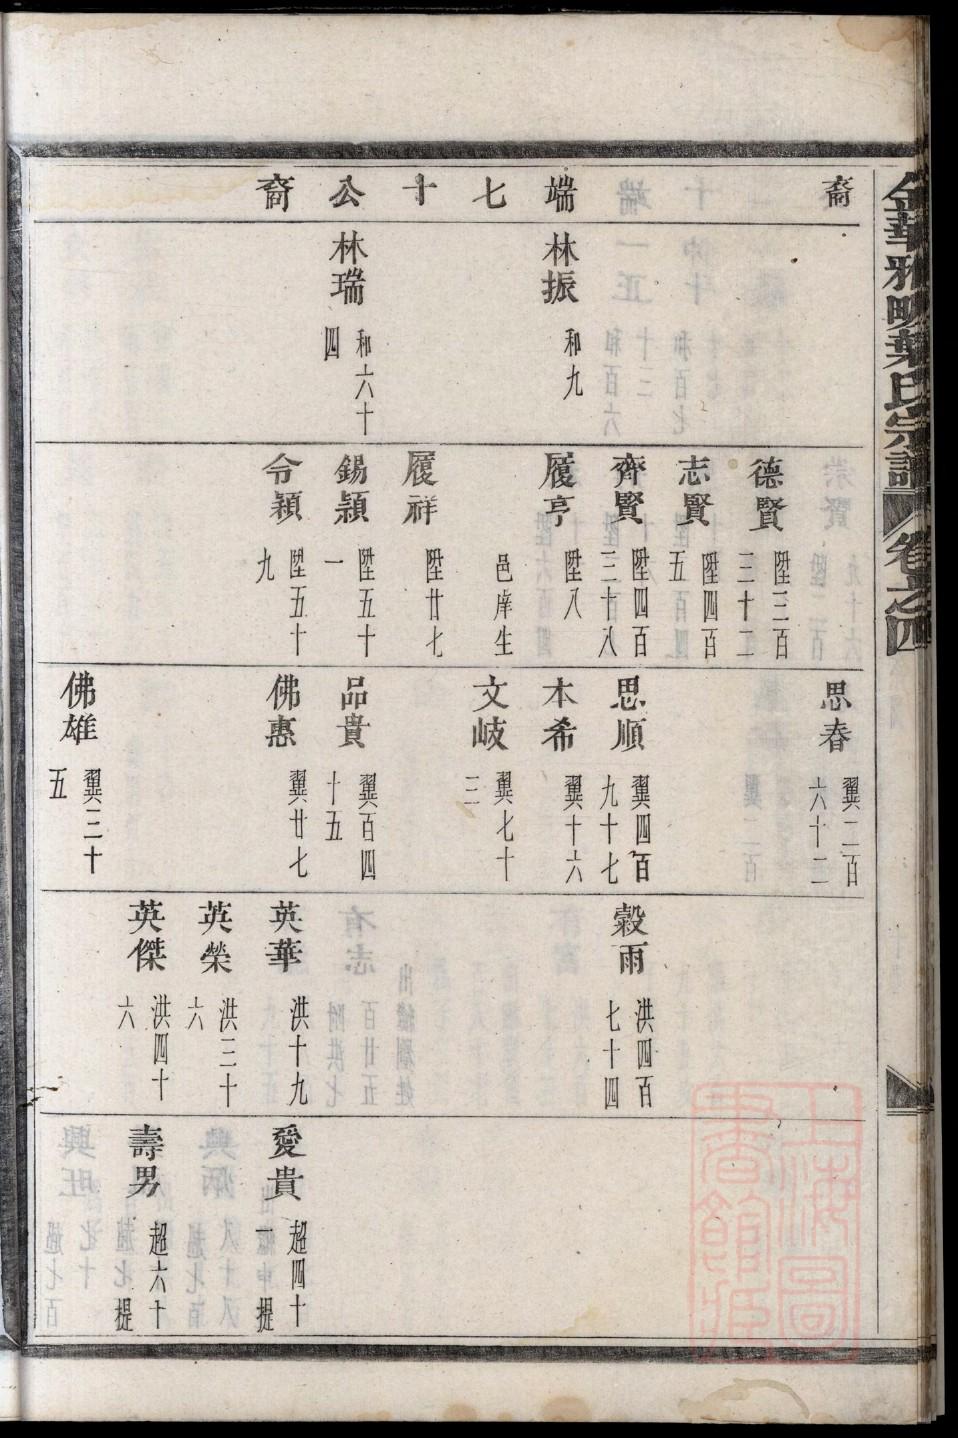 金華雅畈葉氏宗譜 卷之四
裔
端七十公裔
林振 和九
林瑞 和六十四
德賢 陞三百三十二
志賢 陞四百五
齊賢 陞四百三十八
履亨 陞八
邑庠生
履祥 陞廿七
錫穎 陞五十一
令穎 陞五十九
思春 翼二百六十二
思順 翼四百九十七
本希 翼十六
文岐 翼七十三
品貴 翼百四十五
佛惠 翼廿七
佛雄 翼三十五
穀雨 洪四百七十四
英華 洪十九
英榮 洪三十六
英傑 洪四十六
愛貴 超四十一 提
壽男 超六十 提
上海圖書館藏